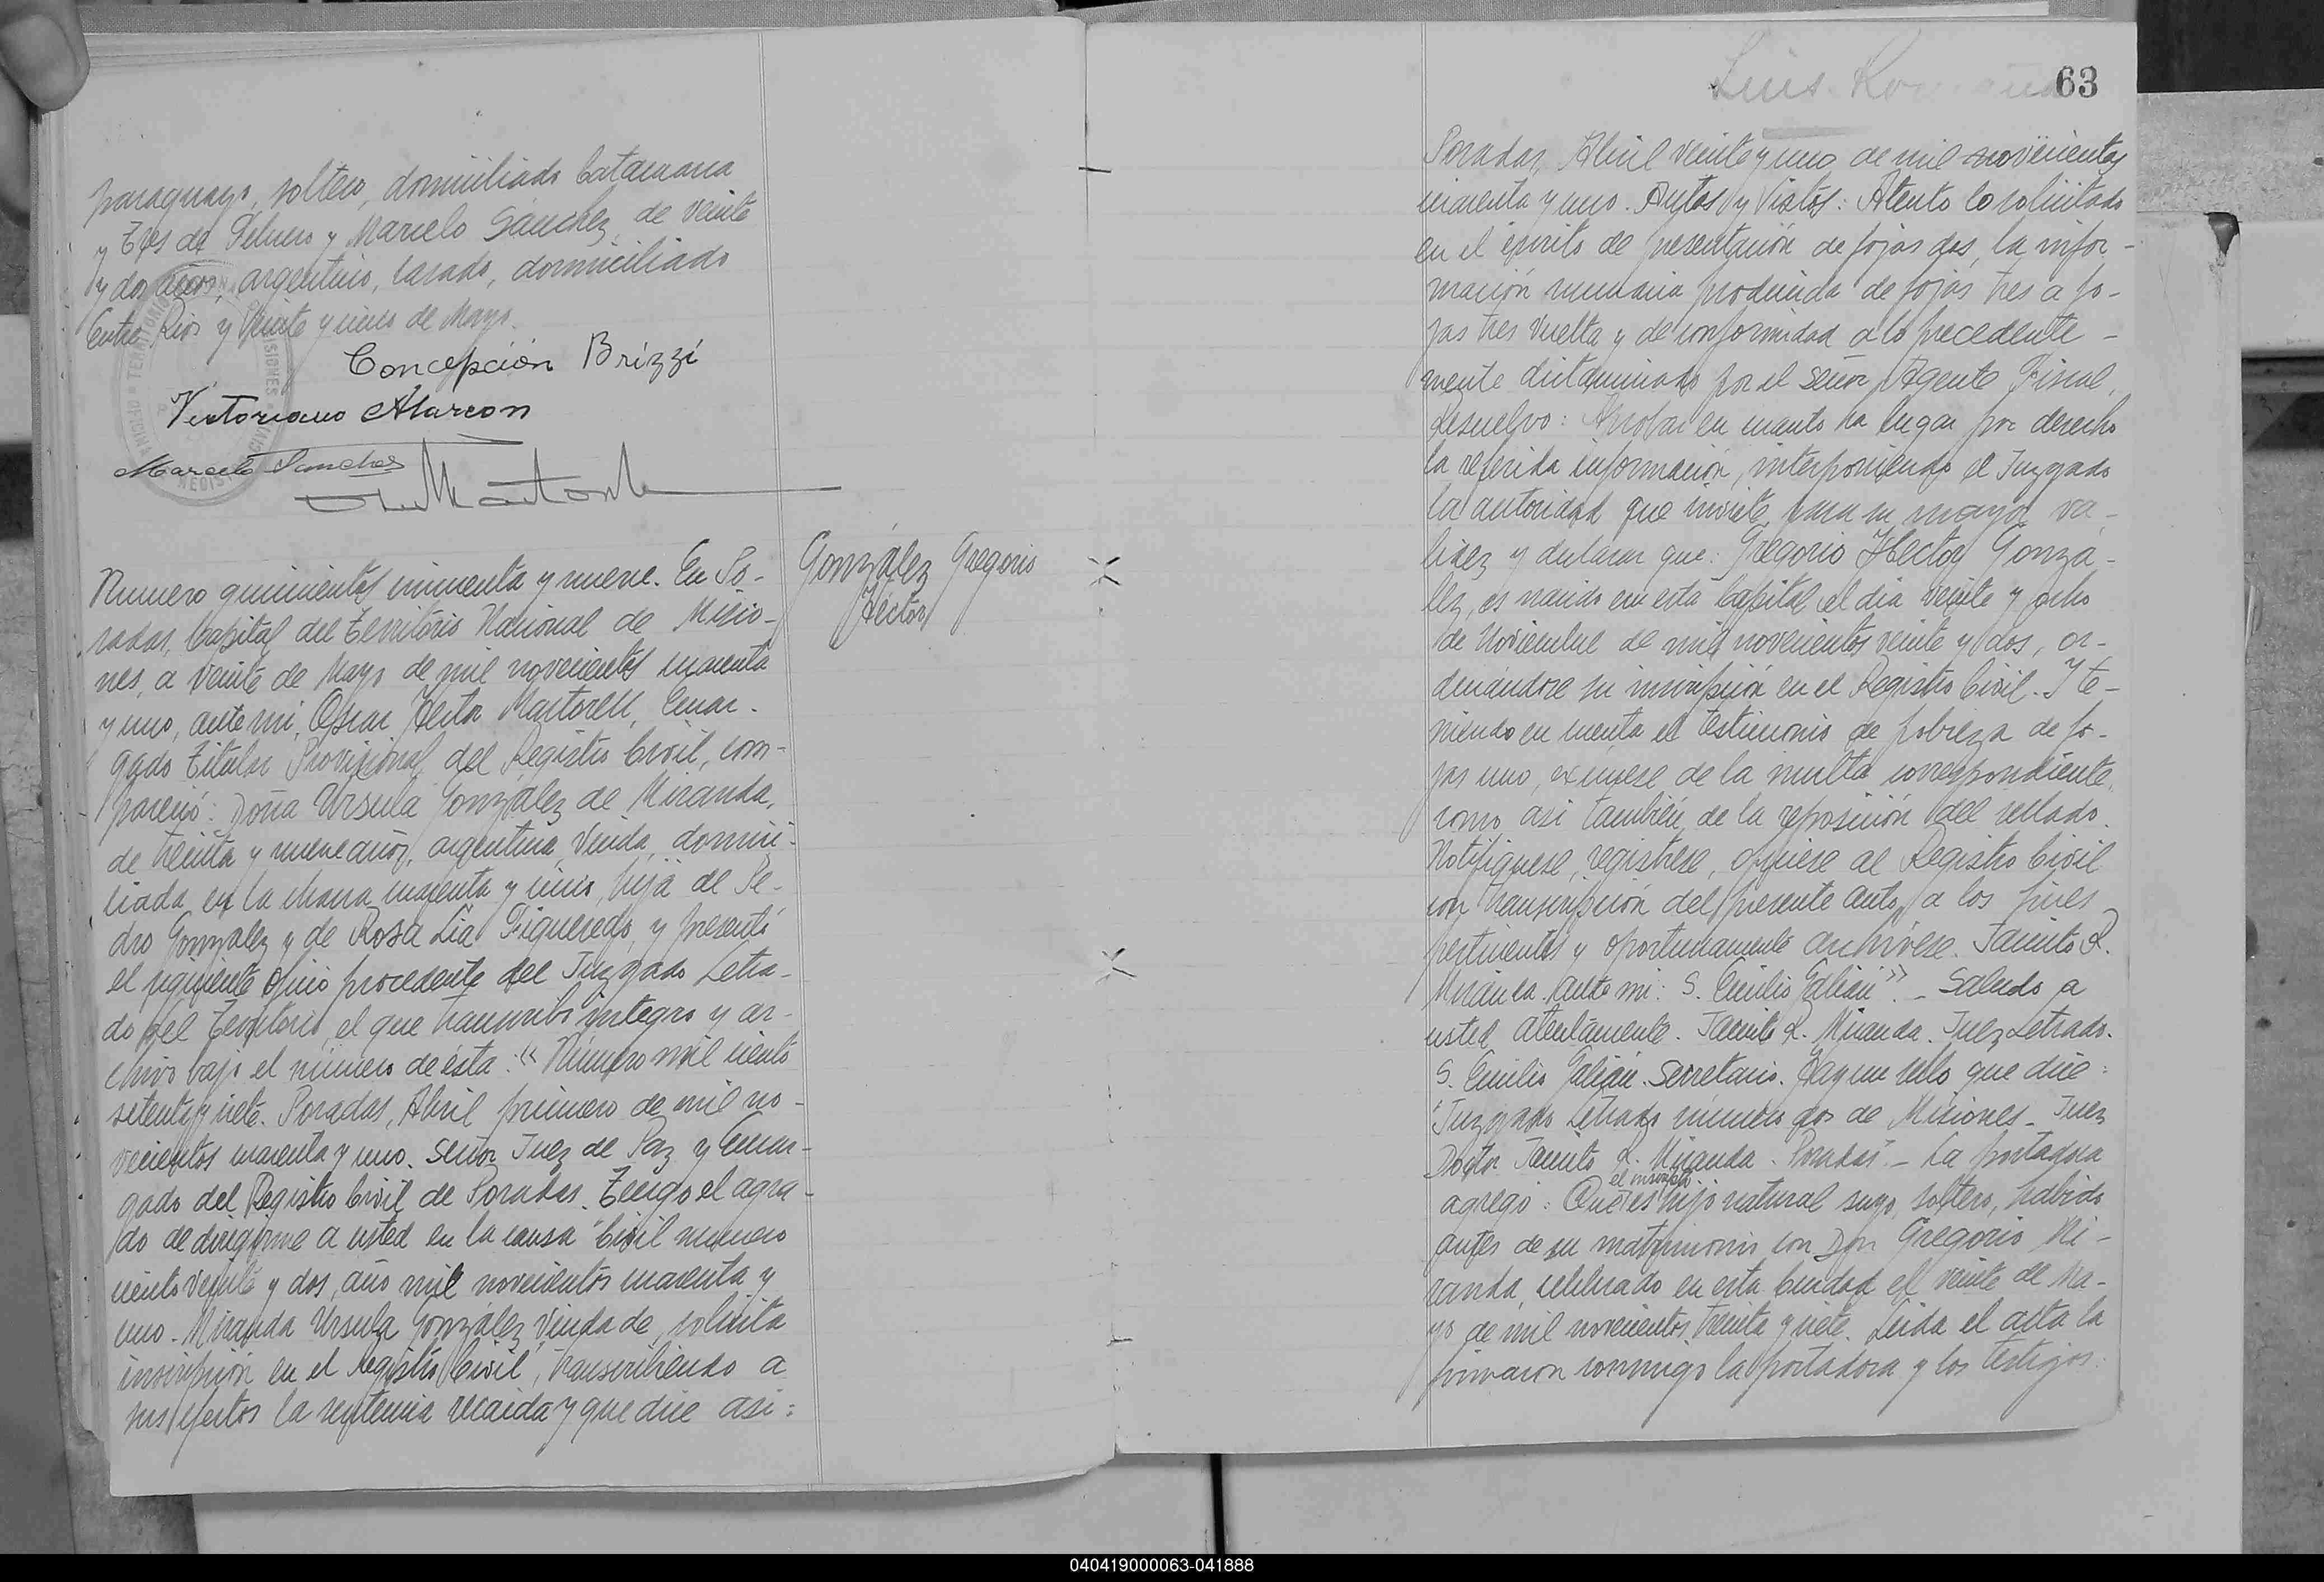 paraguayo, soltero, domiciliado Catamarca
y Tres de Febrero y Marcelo Sánchez, de veinte
y dos años, argentino, casado, domiciliado
Entre Rios y Veinte y cinco de Mayo.
Concepción Brizzi
Victoriano Alarcon
Marcelo Sanchez
Número quinientos cincuenta y nueve. En Po-
sadas, Capital del Territorio Nacional de Misio-
nes, a veinte de Mayo de mil novecientos cuarenta
y uno, ante mi, Oscar Hector Martorell, Encar-
gado Titular Provisional del Registro Civil, com-
pareció: Doña Ursula González de Miranda,
de treinta y nueve años, argentina, viuda, domici-
liada en la chacra cuarenta y cinco, hija de Pe-
dro González y de Rosa Lia Figueredo, y presentó
el siguiente oficio procedente del Juzgado Letra-
do del Territorio, el que transcribo integro y ar-
chivo bajo el número de ésta: "Número mil ciento
setenta y siete. Posadas, Abril primero de mil no-
vecientos cuarenta y uno. Señor Juez de Paz y Encar-
gado del Registro Civil de Posadas. Tengo el agra-
do de dirigirme a usted en la causa Civil número
ciento veinte y dos, año mil novecientos cuarenta y
uno. Miranda Ursula González Viuda de, solicita
inscripción en el Registro Civil, transcribiendo a
sus efectos la sentencia recaida y que dice asi:
González Gregorio
Héctor
63
Posadas, Abril veinte y uno de mil novecientos
cuarenta y uno. Autos y Vistos: Atento lo solicitado
en el escrito de presentación de fojas dos, la infor-
mación sumaria producida de fojas tres a fo-
jas tres vuelta y de conformidad a lo precedente-
mente dictaminado por el señor Agente Fiscal,
Resuelvo: Aprobar en cuanto ha lugar por derecho
la referida información, interponiendo el Juzgado
la autoridad que inviste para su mayor va-
lidez y declarar que: Gregorio Hector Gonzá-
lez, es nacido en esta Capital el dia veinte y ocho
de Noviembre de mil novecientos veinte y dos, or-
denándose su inscripción en el Registro Civil. Y te-
niendo en cuenta el testimonio de pobreza de fo-
jas uno, exímese de la multa correspondiente,
como asi también de la reposición del sellado.
Notifiquese, registrese, ofíciese al Registro Civil
con transcripción del presente auto, a los fines
pertinentes y oportunamente archívese. Jacinto R.
Miranda. Ante mi: S. Emilio Galián". - Saludo a
usted atentamente. Jacinto R. Miranda. Juez Letrado.
S. Emilio Galián. Secretario. Hay un sello que dice:
"Juzgado Letrado número dos de Misiones - Juez
Doctor Jacinto R. Miranda. Posadas". - La portadora
el inscripto
agregó: Que es hijo natural suyo, soltero, habido
antes de su matrimonio con Don Gregorio Mi-
randa, celebrado en esta Ciudad el veinte de Ma-
yo de mil novecientos treinta y siete. Leida el acta la
firmaron conmigo la portadora y los testigos:
040419000063-041888